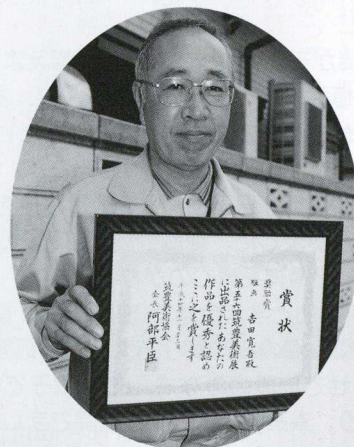 賞状
奨励賞
吉田寛吾殿
第五十六回筑豊美術展
に出品されたあなたの
作品を優秀と認め
ここに之を賞します
筑豊美術協会
会長 阿部平臣